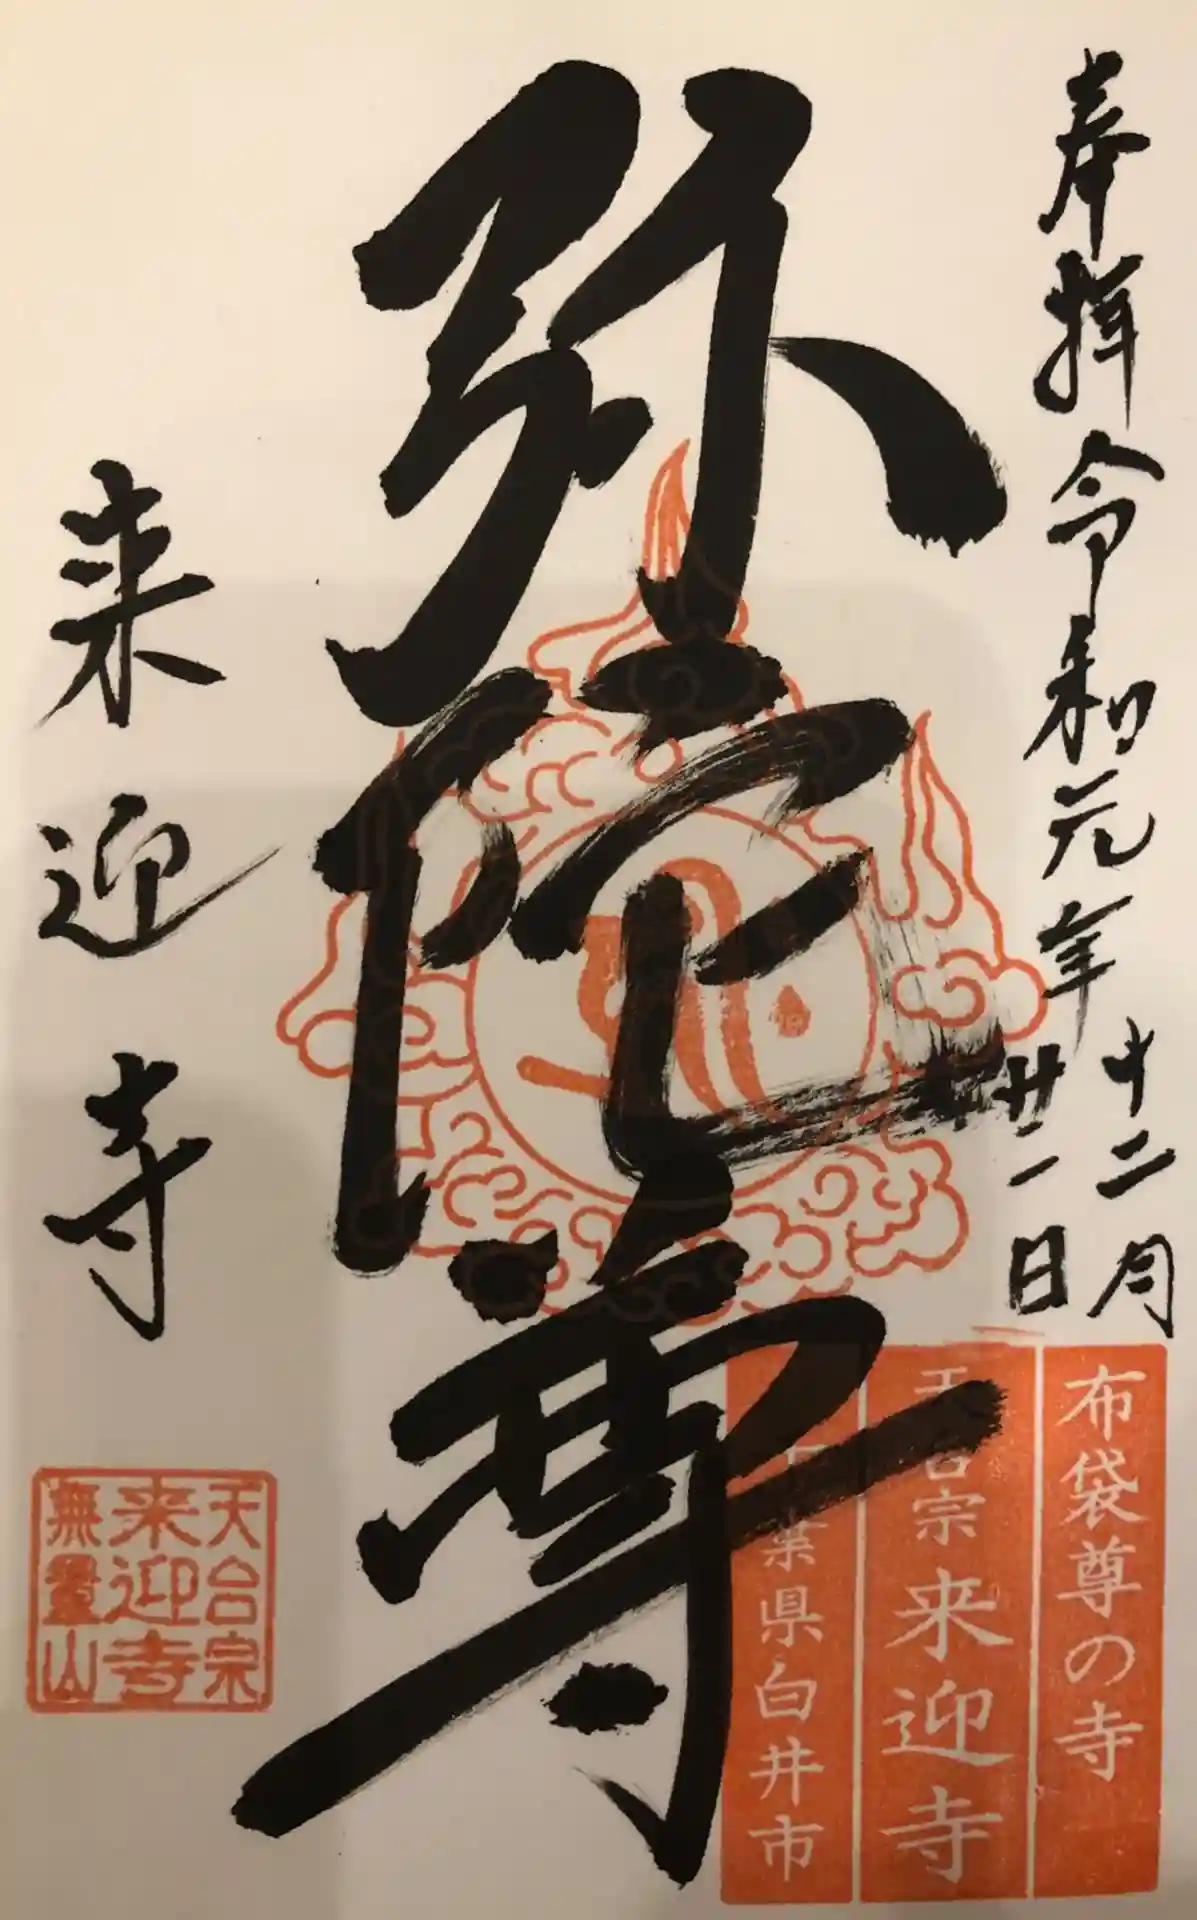 奉拝 令和元年
十二月
廿一日
弥陀尊
来迎寺
布袋尊の寺
天台宗 来迎寺
千葉県白井市
天台宗
来迎寺
無量山